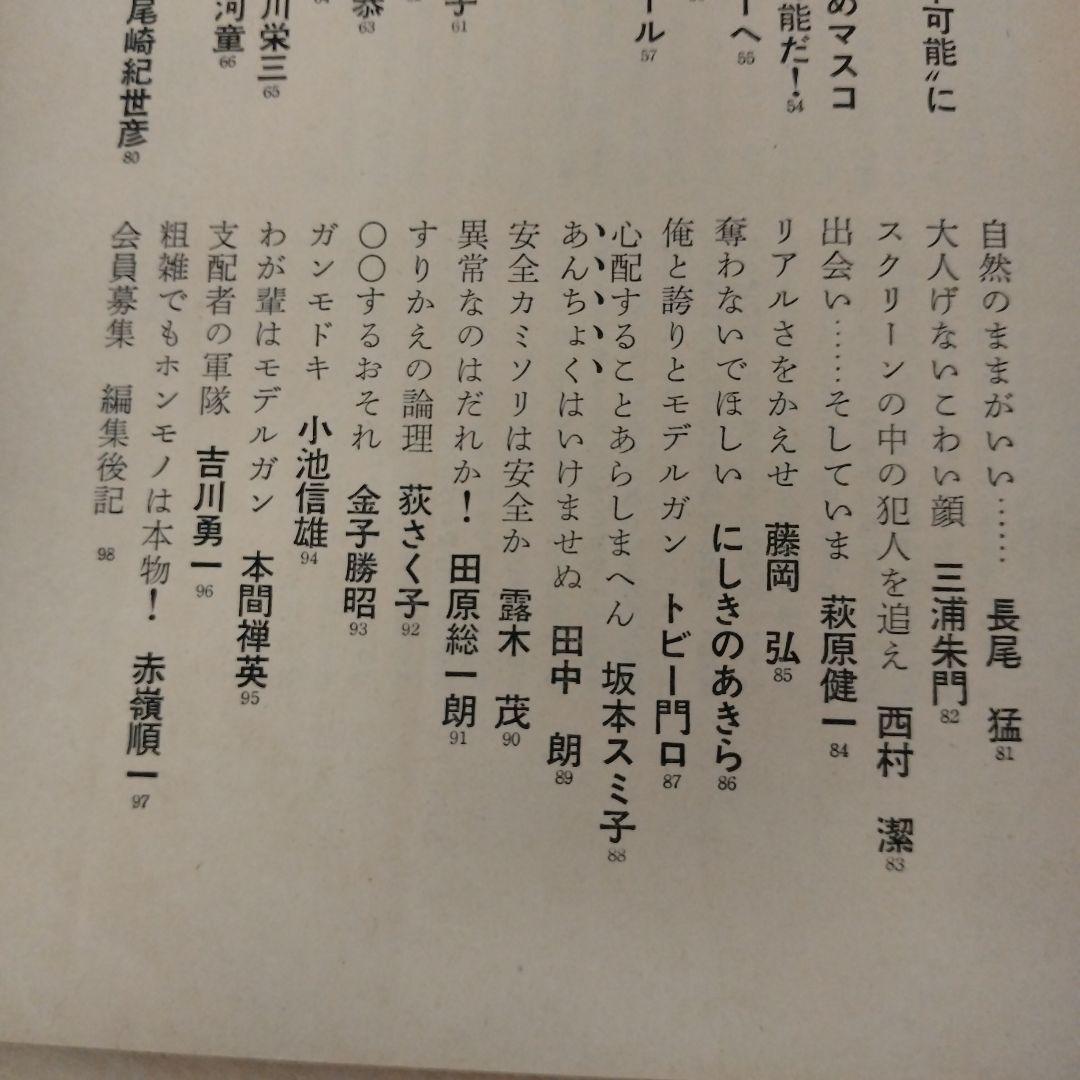 不可能〟に
めマスコ
能だ！ 54
ーへ 55
ール 57
子 61
恭 63
川栄三 65
河童 66
尾崎紀世彦 80
自然のままがいい…… 長尾 猛 81
大人げないこわい顔 三浦朱門 82
スクリーンの中の犯人を追え 西村 潔 83
出会い……そしていま 萩原健一 84
リアルさをかえせ 藤岡 弘 85
奪わないでほしい にしきのあきら 86
俺と誇りとモデルガン トビー門口 87
心配することあらしまへん 坂本スミ子 88
あんちょくはいけませぬ 田中 朗 89
安全カミソリは安全か 露木 茂 90
異常なのはだれか！ 田原総一朗 91
すりかえの論理 荻さく子 92
〇〇するおそれ 金子勝昭 93
ガンモドキ 小池信雄 94
わが輩はモデルガン 本間禅英 95
支配者の軍隊 吉川勇一 96
粗雑でもホンモノは本物！ 赤嶺順一 97
会員募集 編集後記 98